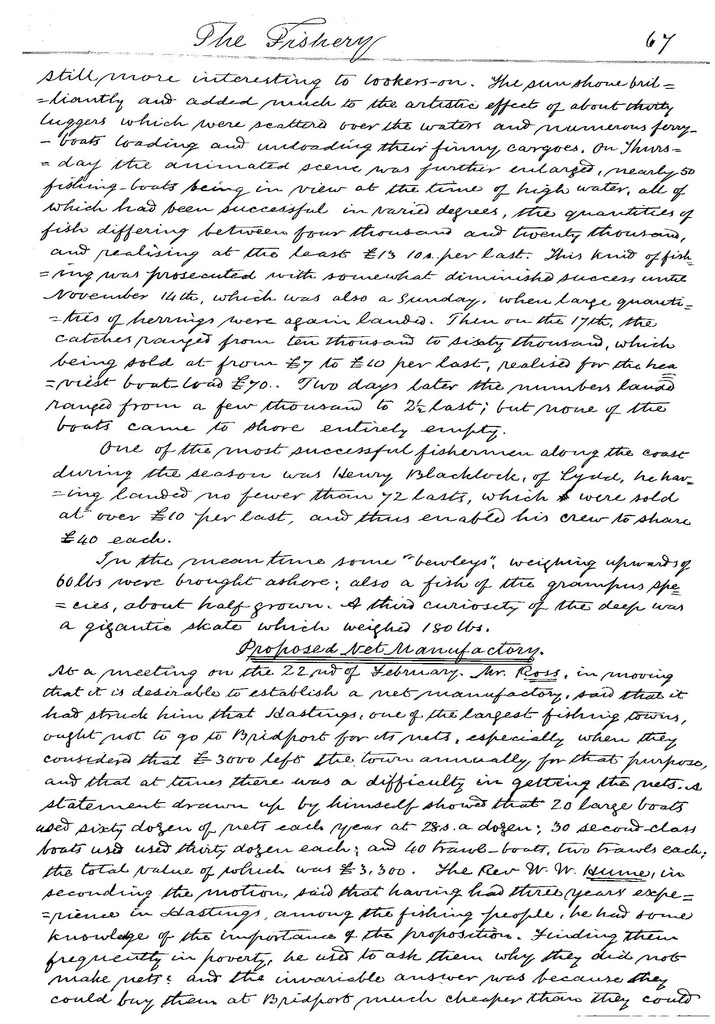 The Fishery 67
still, more interesting to lookers-on. The sun shone bril=
=liantly and added much to the artistic effect of about thirty
luggers which were scattered over the waters and numerous ferry-
-boats loading and unloading their finny cargoes. On Thurs=
=day the animated scene was further enlarged, nearly 50
fishing-boats being in view at the time of high water, all of
which had been successful in varied degrees, the quantities of
fish differing between four thousand and twenty thousand,
and realising at the least £13 10s. per last. This kind of fish=
=ing was prosecuted with somewhat diminished success until
November 14th, which was also a Sunday, when large quanti=
=ties of herrings were again landed. Then on the 17th, the
catches ranged from ten thousand to sixty thousand, which
being sold at from £7 to £10 per last, realised for the hea
=viest boat-load £70. Two days later the numbers landed
ranged from a few thousand to 2½ last; but none of the
boats came to shore entirely empty.
One of the most successful fishermen along the coast
during the season was Henry Blacklock, of Lydd, he hav=
=ing landed no fewer than 72 lasts, which were sold
at over £10 per last, and thus enabled his crew to share
£40 each.
In the mean time some "bewleys", weighing upwards of
60lbs were brought ashore; also a fish of the grampus spe=
=cies, about half grown. A third curiosity of the deep was
a gigantic skate which weighed 180lbs.
Proposed Net Manufactory.
At a meeting on the 22nd of February, Mr. Ross, in moving
that it is desirable to establish a net manufactory, said that it
had struck him that Hastings, one of the largest fishing towns,
ought not to go to Bridport for its nets, especially when they
considerd that £3000 left the town annually for that purpose,
and that at times there was a difficulty in getting the nets. A
statement drawn up by himself showed that 20 large boats
used sixty dozen of nets each year at 28s. a dozen; 30 second-class
boats used used thirty dozen each; and 40 trawl-boats, two trawls each;
the total value of which was £3,300. The Rev W. W. Hume, in
seconding the motion, said that having had three years expe=
=rience in Hastings, among the fishing people, he had some
knowledge of the importance of the proposition. Finding them
frequently in poverty, he used to ask them why they did not
make nets; and the invariable answer was because they
could buy them at Bridport much cheaper than they could